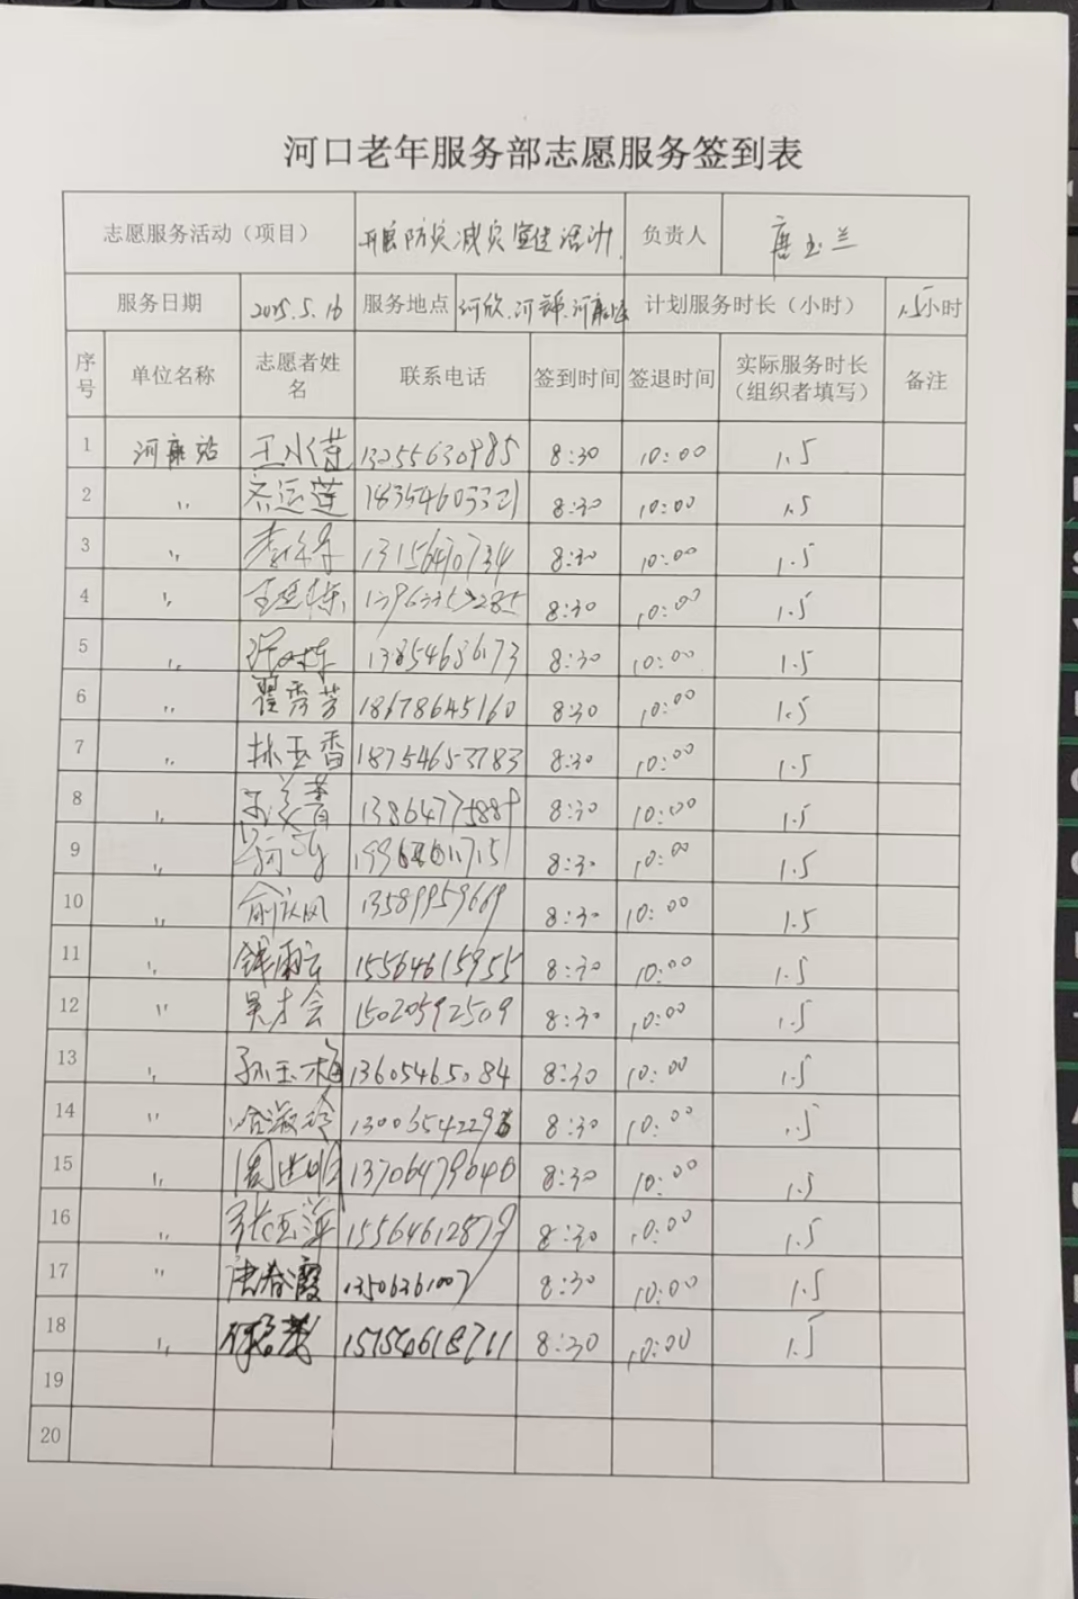 河口老年服务部志愿服务签到表
志愿服务活动（项目） 开展防灾减灾宣传活动. 负责人 唐玉兰
服务日期 2025.5.16 服务地点 河欣.河 .河康 计划服务时长（小时） 1.5小时
序号 单位名称 志愿者姓名 联系电话 签到时间 签退时间 实际服务时长（组织者填写） 备注
1 河康站 王水莲 13255630985 8:30 10:00 1.5
2 〃 18354603321 8:30 10:00 1.5
3 〃 8:30 10:00 1.5
4 〃 8:30 10:00 1.5
5 〃 8:30 10:00 1.5
6 〃 翟秀芳 18678645160 8:30 10:00 1.5
7 〃 林玉香 18754653783 8:30 10:00 1.5
8 〃 13864775889 8:30 10:00 1.5
9 〃 8:30 10:00 1.5
10 〃 13589959669 8:30 10:00 1.5
11 〃 15564615955 8:30 10:00 1.5
12 〃 吴才会 15020592509 8:30 10:00 1.5
13 〃 孙玉梅 13605465084 8:30 10:00 1.5
14 〃 哈淑玲 8:30 10:00 1.5
15 〃 13706479640 8:30 10:00 1.5
16 〃 张玉萍 15564612879 8:30 10:00 1.5
17 〃 唐春霞 8:30 10:00 1.5
18 〃 8:30 10:00 1.5
19
20